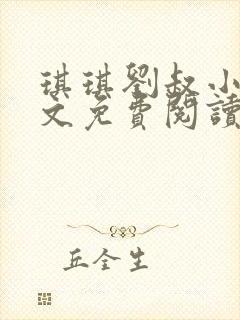 琪琪劉叔小
文免費閱讀
丘全生